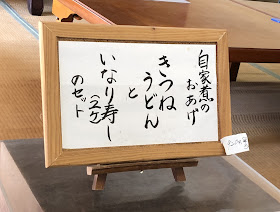 自家煮の
おあげ
きつね
うどん
と
いなり寿し
(2ケ)
のセット